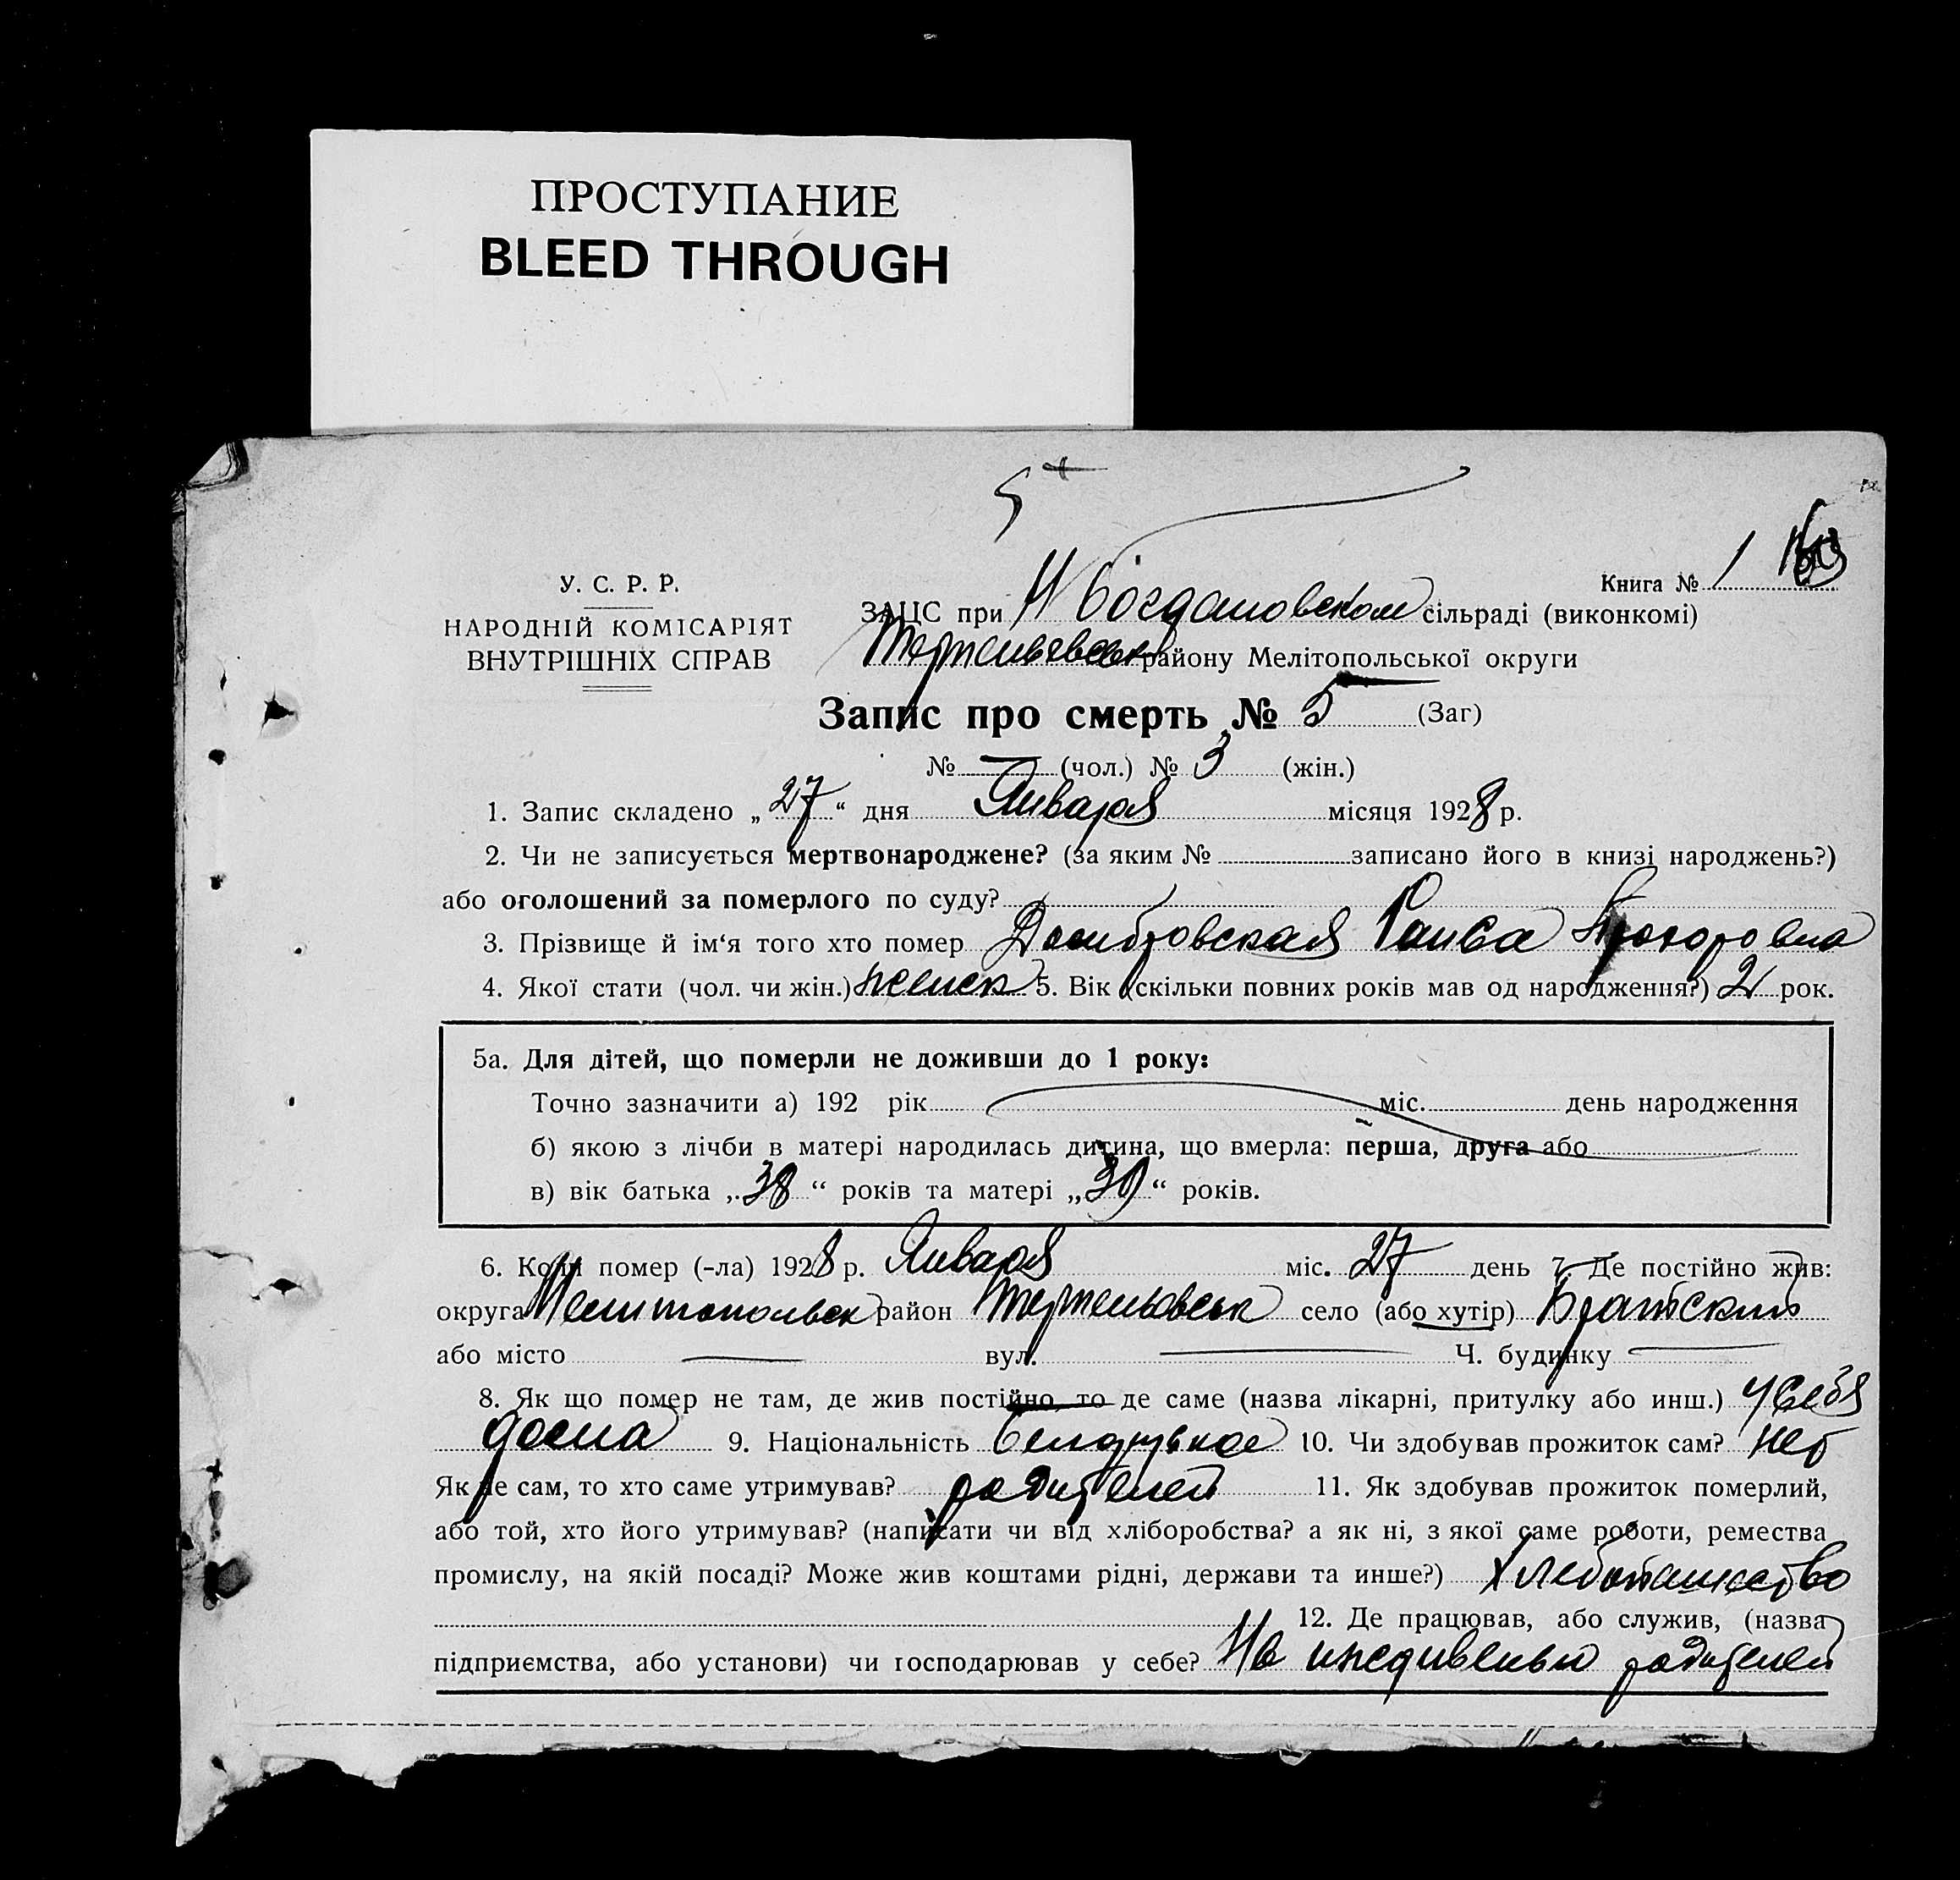 ПРОСТУПАНИЕ
BLEED THROUGH
5
У. С. Р. Р.
НАРОДНІЙ КОМІСАРІЯТ
ВНУТРІШНІХ СПРАВ
Книга № 1
ЗАЦС при Н Богдановском сільраді (виконкомі)
району Мелітопольської округи
Запис про смерть № 5 (Заг)
№ — (чол.) № 3 (жін.)
1. Запис складено „27“ дня Января місяця 1928 р.
2. Чи не записується мертвонароджене? (за яким № записано його в книзі народжень?)
або оголошений за померлого по суду?
3. Прізвище й ім‘я того хто помер Домбровская Раиса Прохоровна
4. Якої стати (чол. чи жін.) женск 5. Вік (скільки повних років мав од народження?) 2 рок.
5а. Для дітей, що померли не доживши до 1 року:
Точно зазначити а) 192 рік міс. день народження
б) якою з лічби в матері народилась дитина, що вмерла: перша, друга або
в) вік батька „38“ років та матері „39“ років.
6. Коли помер (-ла) 1928 р. Января міс. 27 день 7. Де постійно жив:
округа Мелитопольск район село (або хутір) Братский
або місто — вул. — Ч. будинку —
8. Як що помер не там, де жив постійно, то де саме (назва лікарні, притулку або инш.) у себя
дома 9. Національність 10. Чи здобував прожиток сам? нет
Як не сам, то хто саме утримував? родителей 11. Як здобував прожиток померлий,
або той, хто його утримував? (написати чи від хліборобства? а як ні, з якої саме роботи, ремества
промислу, на якій посаді? Може жив коштами рідні, держави та инше?) Хлебопашество
12. Де працював, або служив, (назва
підприємства, або установи) чи господарював у себе? На иждивеньи родителей